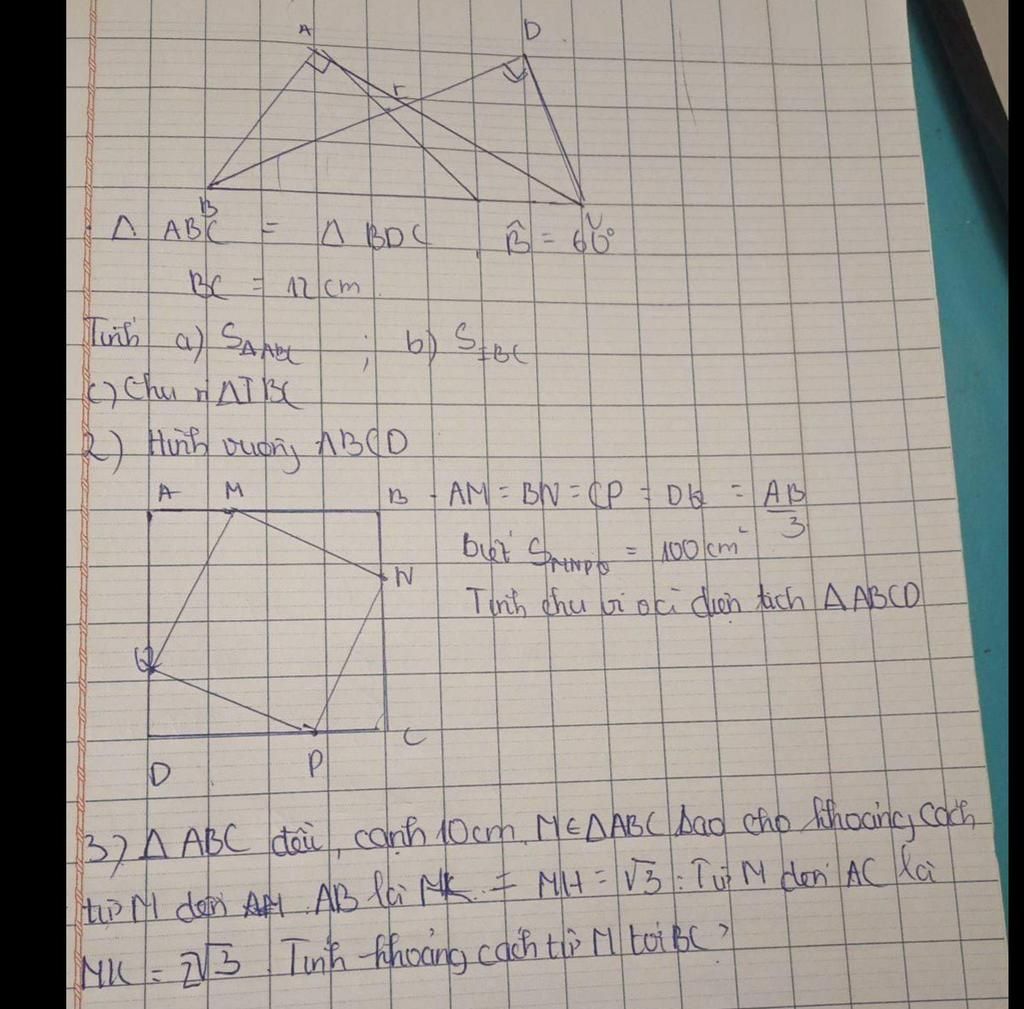 A D
I
B C
Δ ABC = Δ BDC, B̂ = 60°
BC = 12 cm
Tính a) SΔABC ; b) SIBC
c) Chu vi ΔIBC
2) Hình vuông ABCD
A M B - AM = BN = CP = DQ = AB/3
biết SMNPQ = 100 cm²
N
Tính chu vi và diện tích ΔABCD
Q
C
D P
3) Δ ABC đều, cạnh 10cm, M ∈ ΔABC sao cho khoảng cách
từ M đến AB là MH = √3. Từ M đến AC là
MK = 2√3. Tính khoảng cách từ M tới BC?